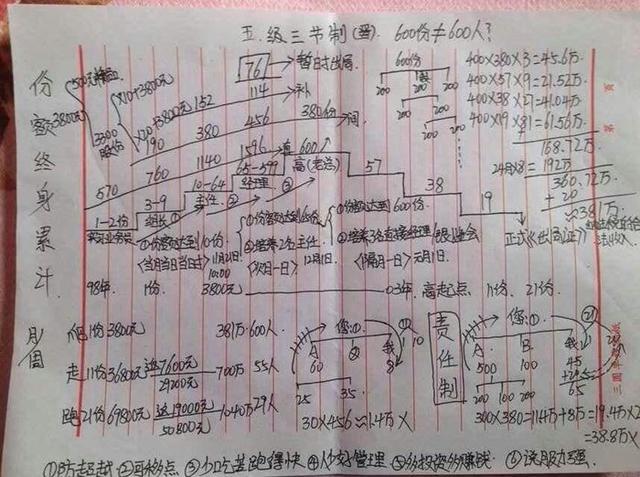 五级三节制(晋). 600份≠600人?
份额终身累计.
3800元
500元
3300
×10+3800元
×20+3800元 152
190
761 → 暂时出局
114 → 补
380 456 380份 → 间
570 760 1140 1596 直
600
高(老总)
65-599
经理 ③
10-64
主任 ②
3-9
组长 ①
1-2份
57
38
19
600份
200 200 200
200 200
200 200
400×380×3=45.6万
400×57×9=21.52万
400×38×27=41.04万
400×19×81=61.56万
168.72万
24月×8=192万
360.72万
+20
≈381万
正式《出局证》
①份额达到10份
〈当月当日当时〉11月21日
10:00
①份额达到65份
②培养2名主任
〈次月一日〉12月1日
①份额达到600份.
②培养3名直接经理
〈隔月一日〉元月1日.
98年. 1份. 3800元
03年. 高起点 11份. 21份.
1份3800元 381万·600人
走11份36800元 送7600元
29200元 700万 55人
跑21份69800元 送19000元
50800元 1040万 29人
您:①
A ② 我
60 8
25 35
10
30×456≈1.4万×
责任制
您:①
A B 我
500 100 45
+20
65
200 100 200
㉑
300×380=11.4万+8万=19.4万×2
=38.8万×
①防超越 ②可移点 ③少吃苦跑得快 ④人少好管理 ⑤多投资多赚钱. ⑥说服力强.